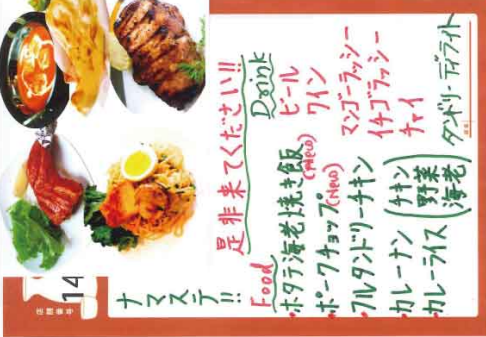 店舗番号
14
ナマステ!!
是非来てください!!
Food
・ホタテ海老焼き飯(New)
・ポークチョップ(New)
・フルタンドリーチキン
・カレーナン
・カレーライス
(チキン
野菜
海老)
Drink
ビール
ワイン
マンゴラッシー
イチゴラッシー
チャイ
タンドリーディライト